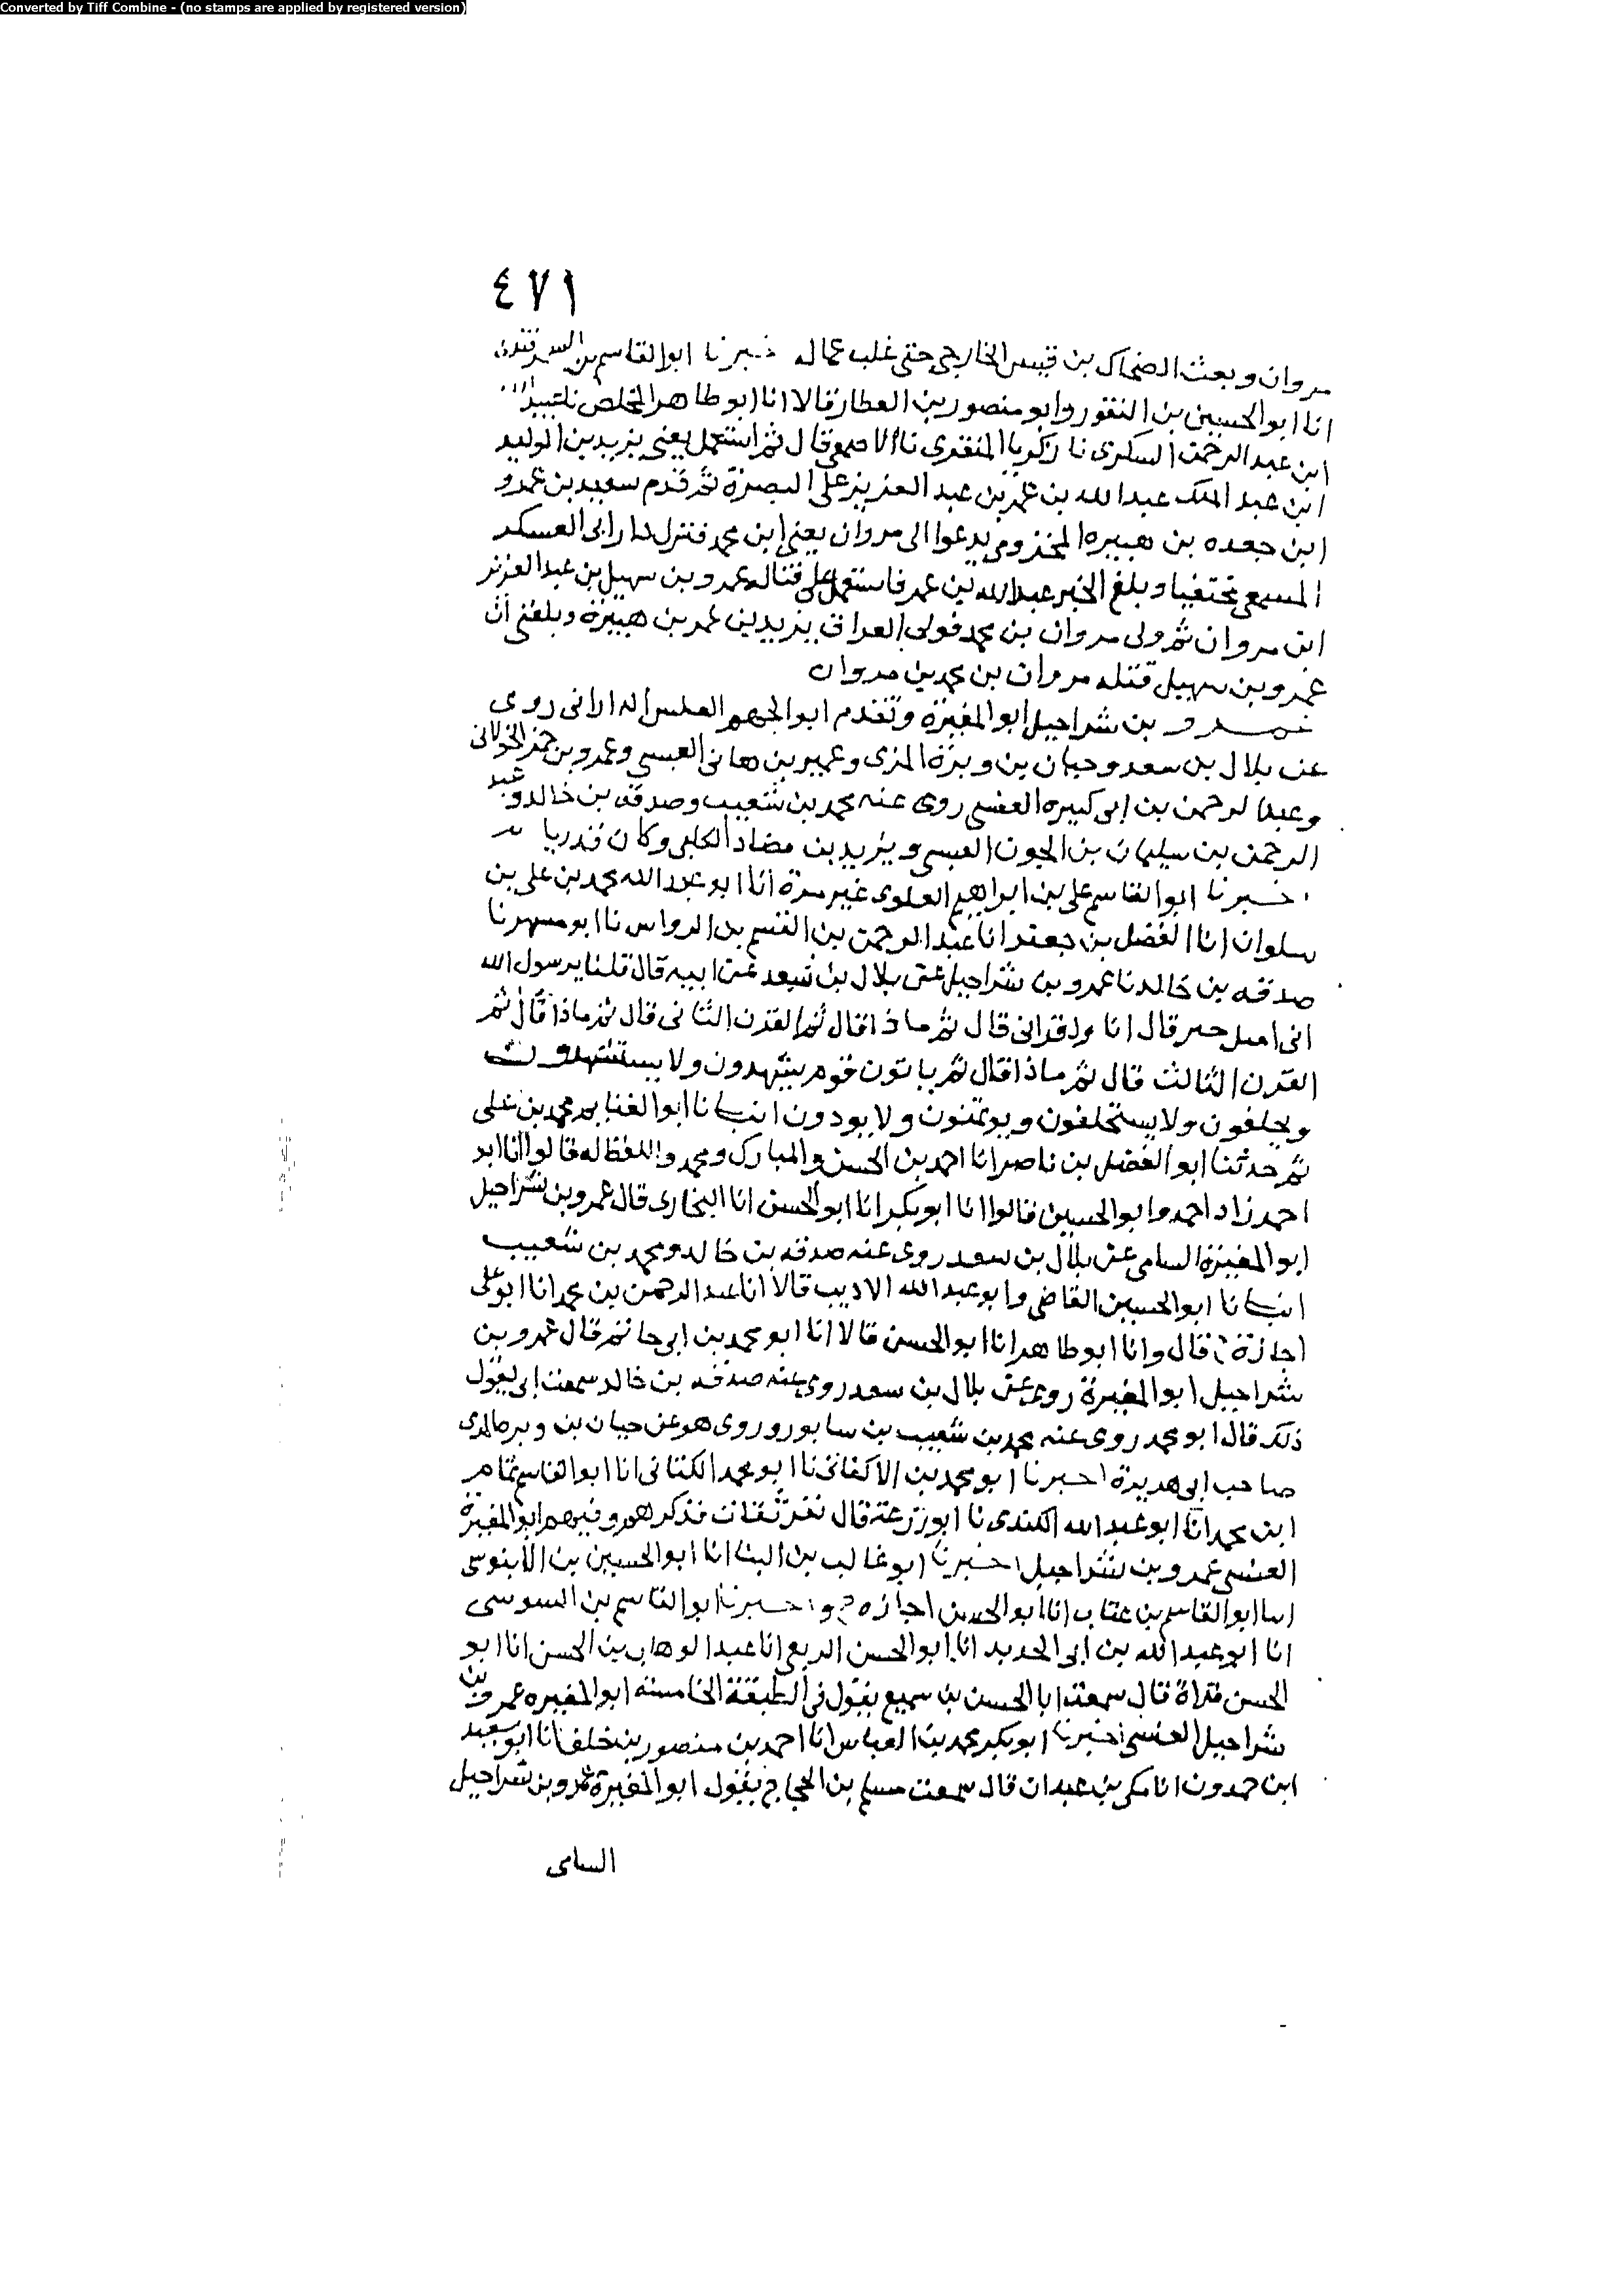 Converted by Tiff Combine - (no stamps are applied by registered version)
٤٧١
مروان وبعث الضحاك بن قيس الخارجي حتى غلب عماله خبرنا ابو القاسم بن السمرقندي
انا ابو الحسين بن النقور وابو منصور بن العطار قالا انا ابو طاهر المخلص نا عبيد الله
ابن عبد الرحمن السكرى نا زكريا المنقري نا الاصمعي قال ثم استعمل يعني يزيد بن الوليد
ابن عبد الملك عبد الله بن عمر بن عبد العزيز على البصرة ثم قدم سعيد بن عمرو
ابن جعده بن هبيره المخزومي يدعوا الى مروان يعني ابن محمد فنزل دار ابى العسكر
المسمعي مختفيا وبلغ الخبر عبد الله بن عمر فاستعمل على قتاله عمرو بن سهيل بن عبد العزيز
ابن مروان ثم ولى مروان بن محمد فولى العراق يزيد بن عمر بن هبيرة وبلغني ان
عمرو بن سهيل قتله مروان بن محمد بن مروان
عمرو بن شراحيل ابو المغيرة وتقدم ابو الجهم العنسي الدارانى روى
عن بلال بن سعد وحيان بن وبرة المزى وعمير بن هانى العبسي وعمرو بن الخولانى
وعبد الرحمن بن ابى كبيره العنسي روى عنه محمد بن شعيب وصدقه بن خالد وعبد
الرحمن بن سليمان بن الجون العبسي ويزيد بن مضاد الكلبى وكان قدريا
اخبرنا ابو القاسم على بن ابراهيم العلوى غير مرة انا ابو عبد الله محمد بن على بن
سلوان انا الفضل بن جعفر انا عبد الرحمن بن القسم بن الرواس نا ابو مسهر نا
صدقه بن خالد نا عمرو بن شراحيل عن بلال بن سعد عن ابيه قال قلنا يرسول الله
اى امتك خير قال انا وقرانى قال ثم ماذا قال ثم القرن الثانى قال ثم ماذا قال ثم
القرن الثالث قال ثم ماذا قال ثم ياتون قوم يشهدون ولا يستشهدون
ويحلفون ولا يستحلفون ويوتمنون ولا يودون انبانا ابو الغنايم محمد بن على
ثم حدثنا ابو الفضل بن ناصر انا احمد بن الحسن والمبارك ومحمد واللفظ له قالوا انا ابو
احمد زاد احمد وابو الحسين قالوا انا ابو بكر انا ابو الحسن انا البخارى قال عمرو بن شراحيل
ابو المغيرة السامى عن بلال بن سعد روى عنه صدقه بن خالد ومحمد بن شعيب
انبانا ابو الحسين القاضى وابو عبد الله الاديب قالا انا عبد الرحمن بن محمد انا ابو على
اجازة ح قال وانا ابو طاهر انا ابو الحسن قالا انا ابو محمد بن ابى حاتم قال عمرو بن
شراحيل ابو المغيرة روى عن بلال بن سعد روى عنه صدقه بن خالد سمعت ابى يقول
ذلك قال ابو محمد روى عنه محمد بن شعيب بن سابور وروى هو عن حيان بن وبره المرى
صاحب ابى هديرة اخبرنا ابو محمد بن الاكفانى نا ابو محمد الكتانى انا ابو القاسم تمام
ابن محمد انا ابو عبد الله الكندى نا ابو زرعة قال نفر ثقات فذكرهم وفيهم ابو المغيرة
العنسي عمرو بن شراحيل اخبرنا ابو غالب بن البنا انا ابو الحسين بن الابنوسى
انا ابو القاسم بن عتاب انا ابو الحسن اجازه ح واخبرنا ابو القاسم بن السوسى
انا ابو عبد الله بن ابى الحديد انا ابو الحسن الربعى انا عبد الوهاب بن الحسن انا ابو
الحسن قراة قال سمعت ابا الحسن بن سميع يقول فى الطبقة الخامسه ابو المغيره عمرو بن
شراحيل العنسي اخبرنا ابو بكر محمد بن العباس انا احمد بن منصور بن خلف انا ابو سعيد
ابن حمدون انا مكى بن عبدان قال سمعت مسلم بن الحجاج يقول ابو المغيرة عمرو بن شراحيل
السامى